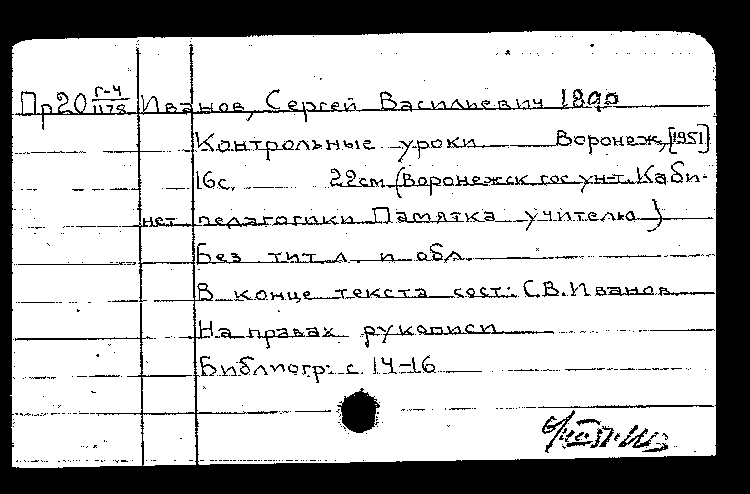 Пр20 Г-4/1178 Иванов, Сергей Васильевич 1890
Контрольные уроки. Воронеж, [1951]
16с. 22см (Воронежск гос ун-т. Каби-
нет педагогики Памятка учителю)
Без тит л. и обл.
В конце текста сост: С.В. Иванов
На правах рукописи
Библиогр: с 14-16